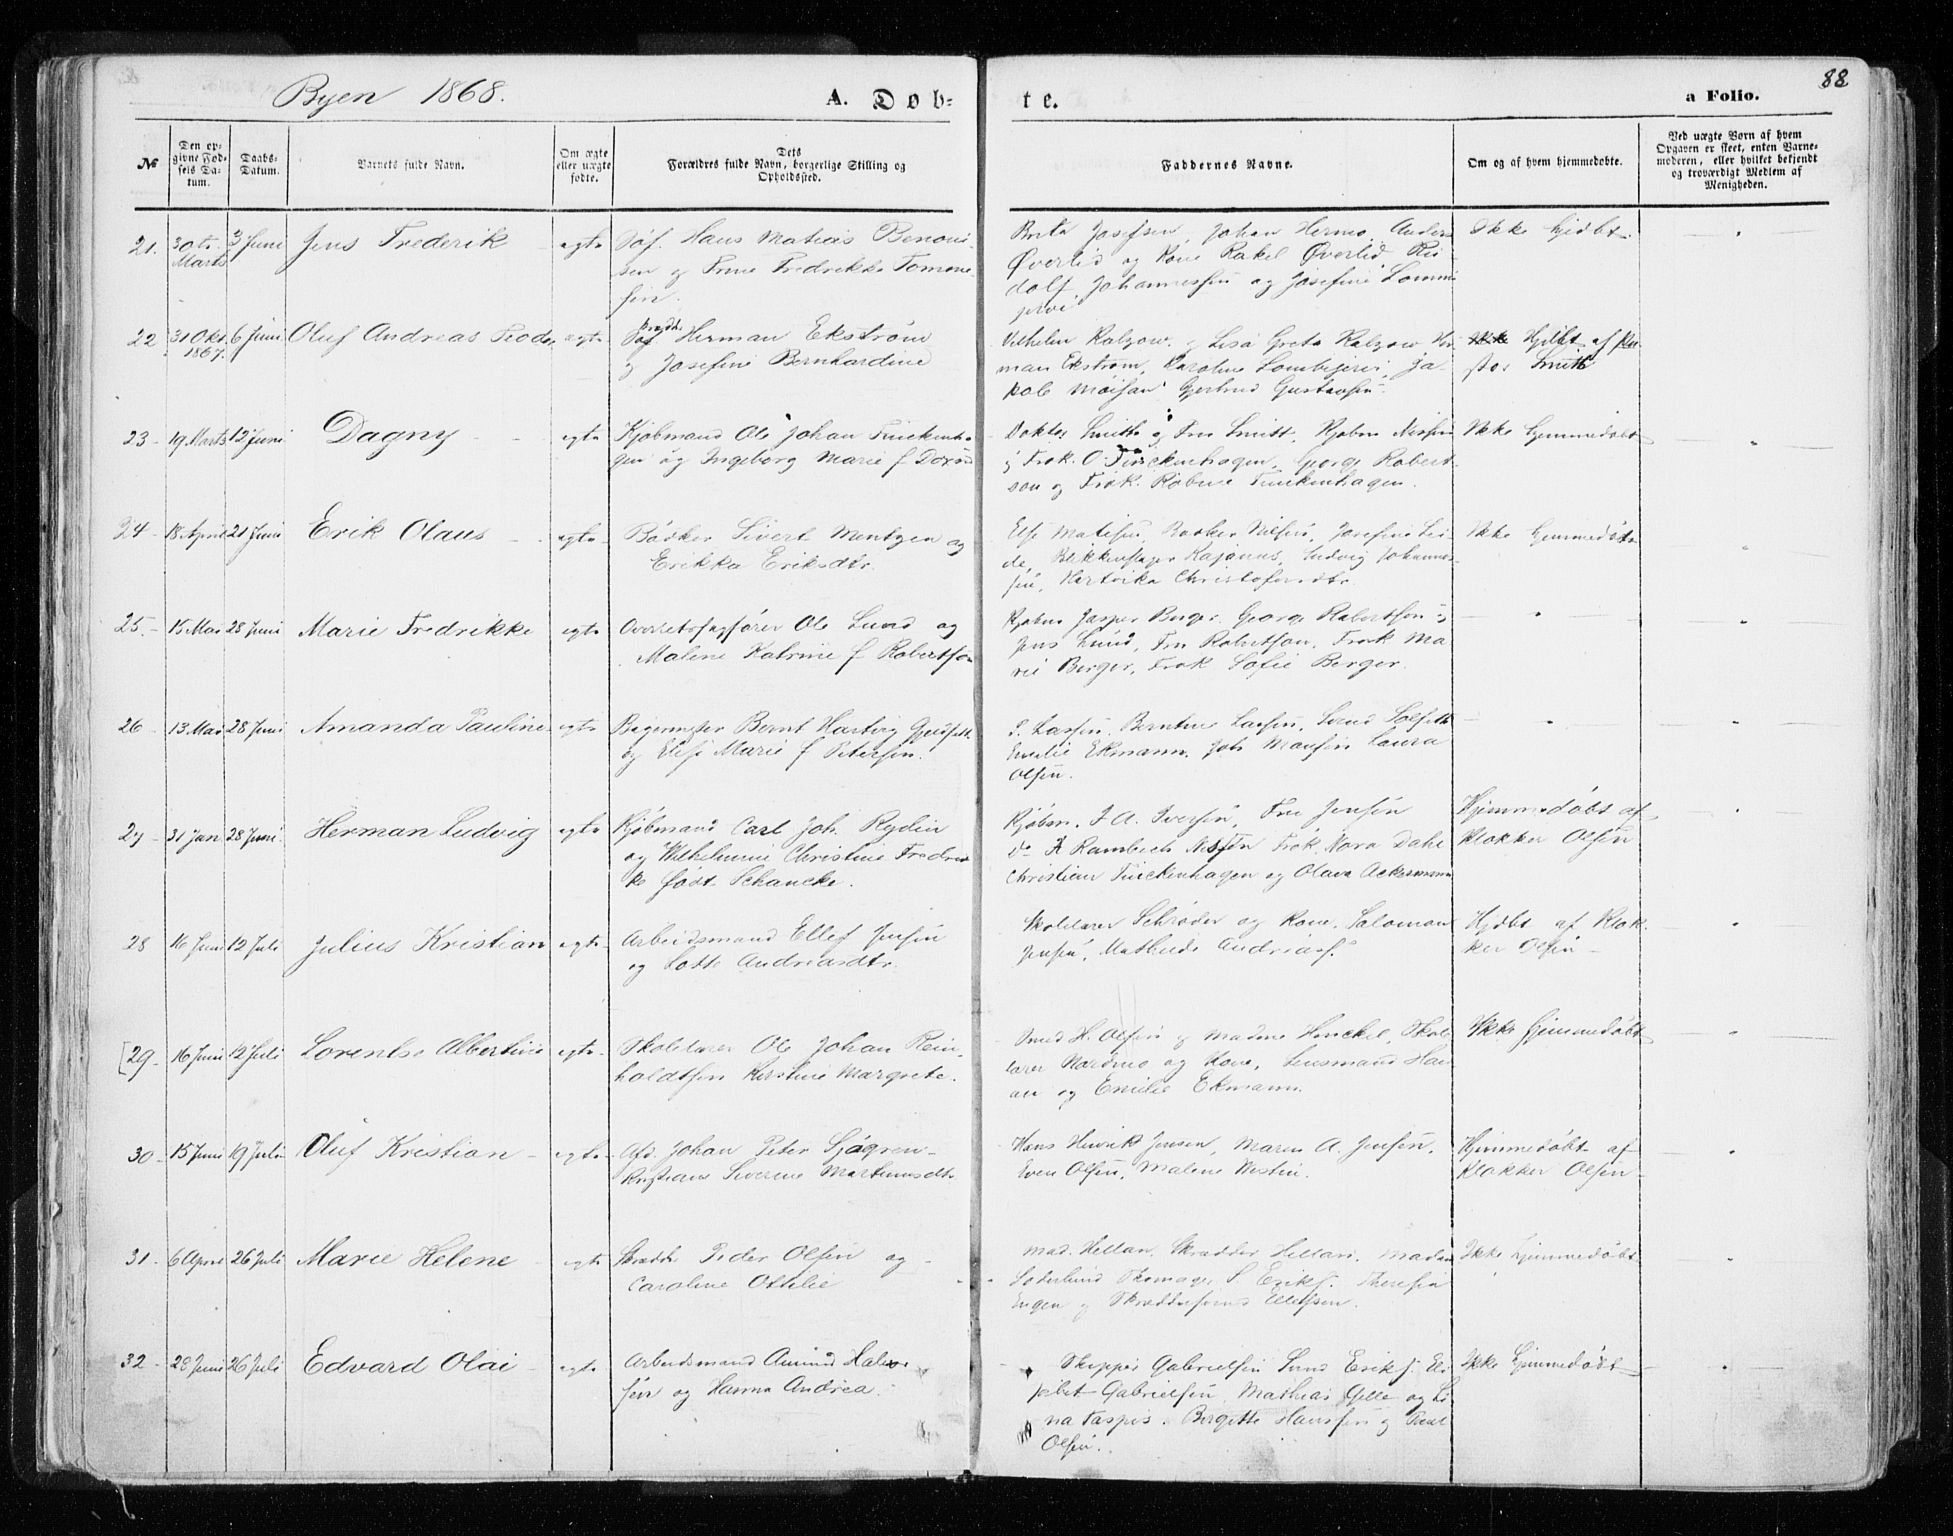 Byen 1868.
A. Døb-
te.
a Folio.
88
№
Den op-
givne Fød-
sels Da-
tum.
Daabs-
Datum.
Barnets fulde Navn.
Om ægte
eller uægte
fødte.
Dets
Forældres fulde Navn, borgerlige Stilling og
Opholdssted.
Faddernes Navne.
Om og af hvem hjemmedøbte.
Ved uægte Børn af hvem
Opgaven er skeet, enten Barne-
moderen, eller hvilket bekjendt
og troværdigt Medlem af
Menigheden.
21. 30te Marts 3 Juni Jens Frederik - egte
Hans Matias Benoni-
sen og Fredrikke Tomme-
sen.
Brita Josefsen, Johan Hermo, Anders
Øverlid og Kone Rakel Øverlid Ru-
dolf Johannessen og Josefine
Ikke hjdbt.
22 31 Okt. 1867. 6 Juni Oluf Andreas egte
Herman Ekstrøm
og Josefine Bernhardine
Vilhelm Kalzow og Lisa Greta Kalzow Her-
man Ekstrøm, Karoline Ja-
kob Gjertrud Gustavsen
Hjdbt af Pa-
stor Smith
23 - 19 Marts 12 Juni Dagny - - egte
Kjøbmand Ole Johan Finckenha-
gen og Ingeborg Marie f
Doktor Smith og Fru Smitt, Kjøbm Nissen
og Frøk. O. Finckenhagen, George Robert-
son og Frøk. Finckenhagen.
Ikke hjemmedøbt
24 - 18 April 21 Juni Erik Olaus - - egte
Bødker Sivert Mentzen og
Erikka Eriksdtr.
Else Matisen, Nilsen, Josefine Li-
de, Blikkenslager Kajanus, Ludvig Johannes-
sen, Hertvika Christofersdtr.
Ikke hjemmedøbt
25. - 15 Mai 28 Juni Marie Fredrikke egte
Overretssagfører Ole Lund og
Malene Katrine f Robertson
Kjøbm Jasper Berger. George Robertson og
Jens Lund, Fru Robertson, Frøk Ma-
rie Berger, Frøk Sofie Berger.
26 - 13 Mai 28 Juni Amanda Pauline egte
Bagermester Bernt Hartvig
og Elise Marie f Petersen.
Larsen, Berntine Larsen,
Emilie Ekmann, Joh Laura
Olsen.
27 - 31 Jan 28 Juni Herman Ludvig egte
Kjøbmand Carl Joh. Rydin
og Wilhelmine Christine Fredrik-
ke født Schancke.
Kjøbm. J A. Iversen, Fru Jensen
Nissen Frøk. Nora Dahl
Christian Finckenhagen og Olava Ackermann
Hjemmedøbt af
Klokker Olsen
28 16 Juni 12 Juli Julius Kristian egte
Arbeidsmand Ellef Jensen
og Lotte Andreasdtr.
Skolelærer Schrøder og Kone, Saloman
Jensen, Mathilde Andreass.
Hjdbt af Klok-
ker Olsen -
[29 - 16 Juni 12 Juli Lorentse Albertine egte
Skolelærer Ole Johan Rein-
holdtsen Kirstine Margrete.
H. Olsen og Madme Henckel, Skole-
lærer Nordmo og Kone, Lensmand
og Emilie Ekmann.
Ikke hjemmedøbt
30 - 15 Juni 19 Juli Oluf Kristian - egte
Johan Peter Sjøgren -
Kristiane Severine Martinusdtr
Hans Hinrik Jensen, Maren A. Jensen,
Even Olsen, Malene
Hjemmedøbt af
Klokker Olsen -
31 - 6 April 26 Juli Marie Helene - egte
Peder Olsen og -
Caroline Othilie
Mad. Hellan, Skrædder Hellan, Madam
Søderlund Skomager S. Eriks. Theresia
Engen og Ellefsen.
Ikke hjemmedøbt
32 - 28 Juni 26 Juli Edvard Olai - egte
Arbeidsmand Amund Halvor-
sen og Hanna Andrea.
Skipper Gabrielsen Eriks. Eli-
sabet Gabrielsen, Mathias Gjelle og Li-
na Bergitte Hanssen og
Olsen.
Ikke hjemmedøbt